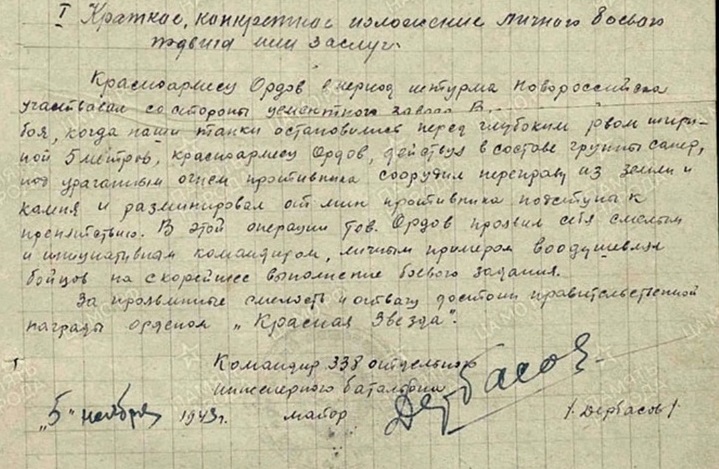 I Краткое, конкретное изложение личного боевого
подвига или заслуг.
Красноармеец Ордов в период штурма Новороссийска
участвовал со стороны цементного завода В
боя, когда наши танки остановились перед глубоким рвом шири-
ной 5 метров, красноармеец Ордов, действуя в составе группы сапер,
под ураганным огнем противника соорудил переправу из земли и
камня и разминировал от мин противника подступы к
препятствию. В этой операции тов. Ордов проявил себя смелым
и инициативным командиром, личным примером воодушевляя
бойцов на скорейшее выполнение боевого задания.
За проявленные смелость и отвагу достоин правительственной
награды орденом „Красная Звезда".
Командир 338 отдельного
инженерного баталиона
„5" ноября 1943 г. майор Дербасов /Дербасов/